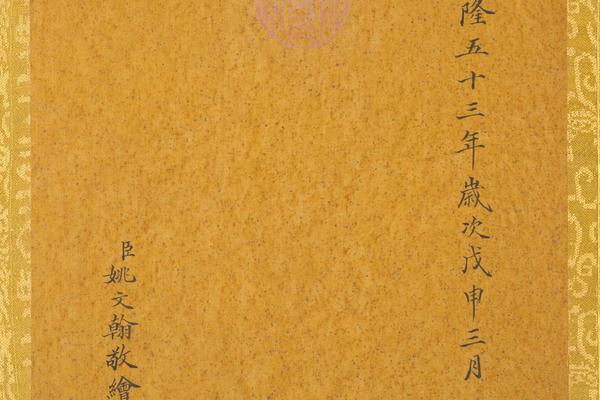 隆五十三年歲次戊申三月
臣姚文翰敬繪